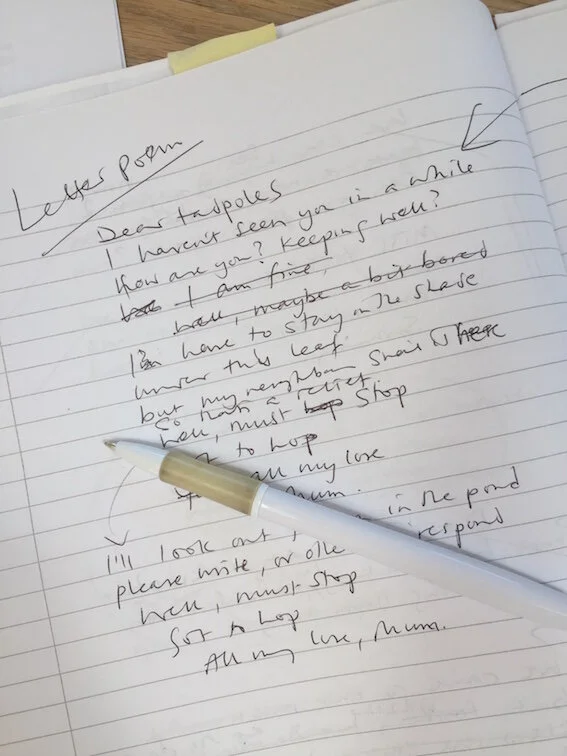 Letter Poem
Dear tadpoles
I haven't seen you in a while
How are you? Keeping well?
I am fine,
well, maybe a bit bored
I have to stay in the shade
under this leaf
but my neighbour Snail is here
So that's a relief
Well, must hop Stop
to hop
all my love
Mum.
I'll look out in the pond
please write, or respond
Well, must stop
Got to hop
All my love, Mum.